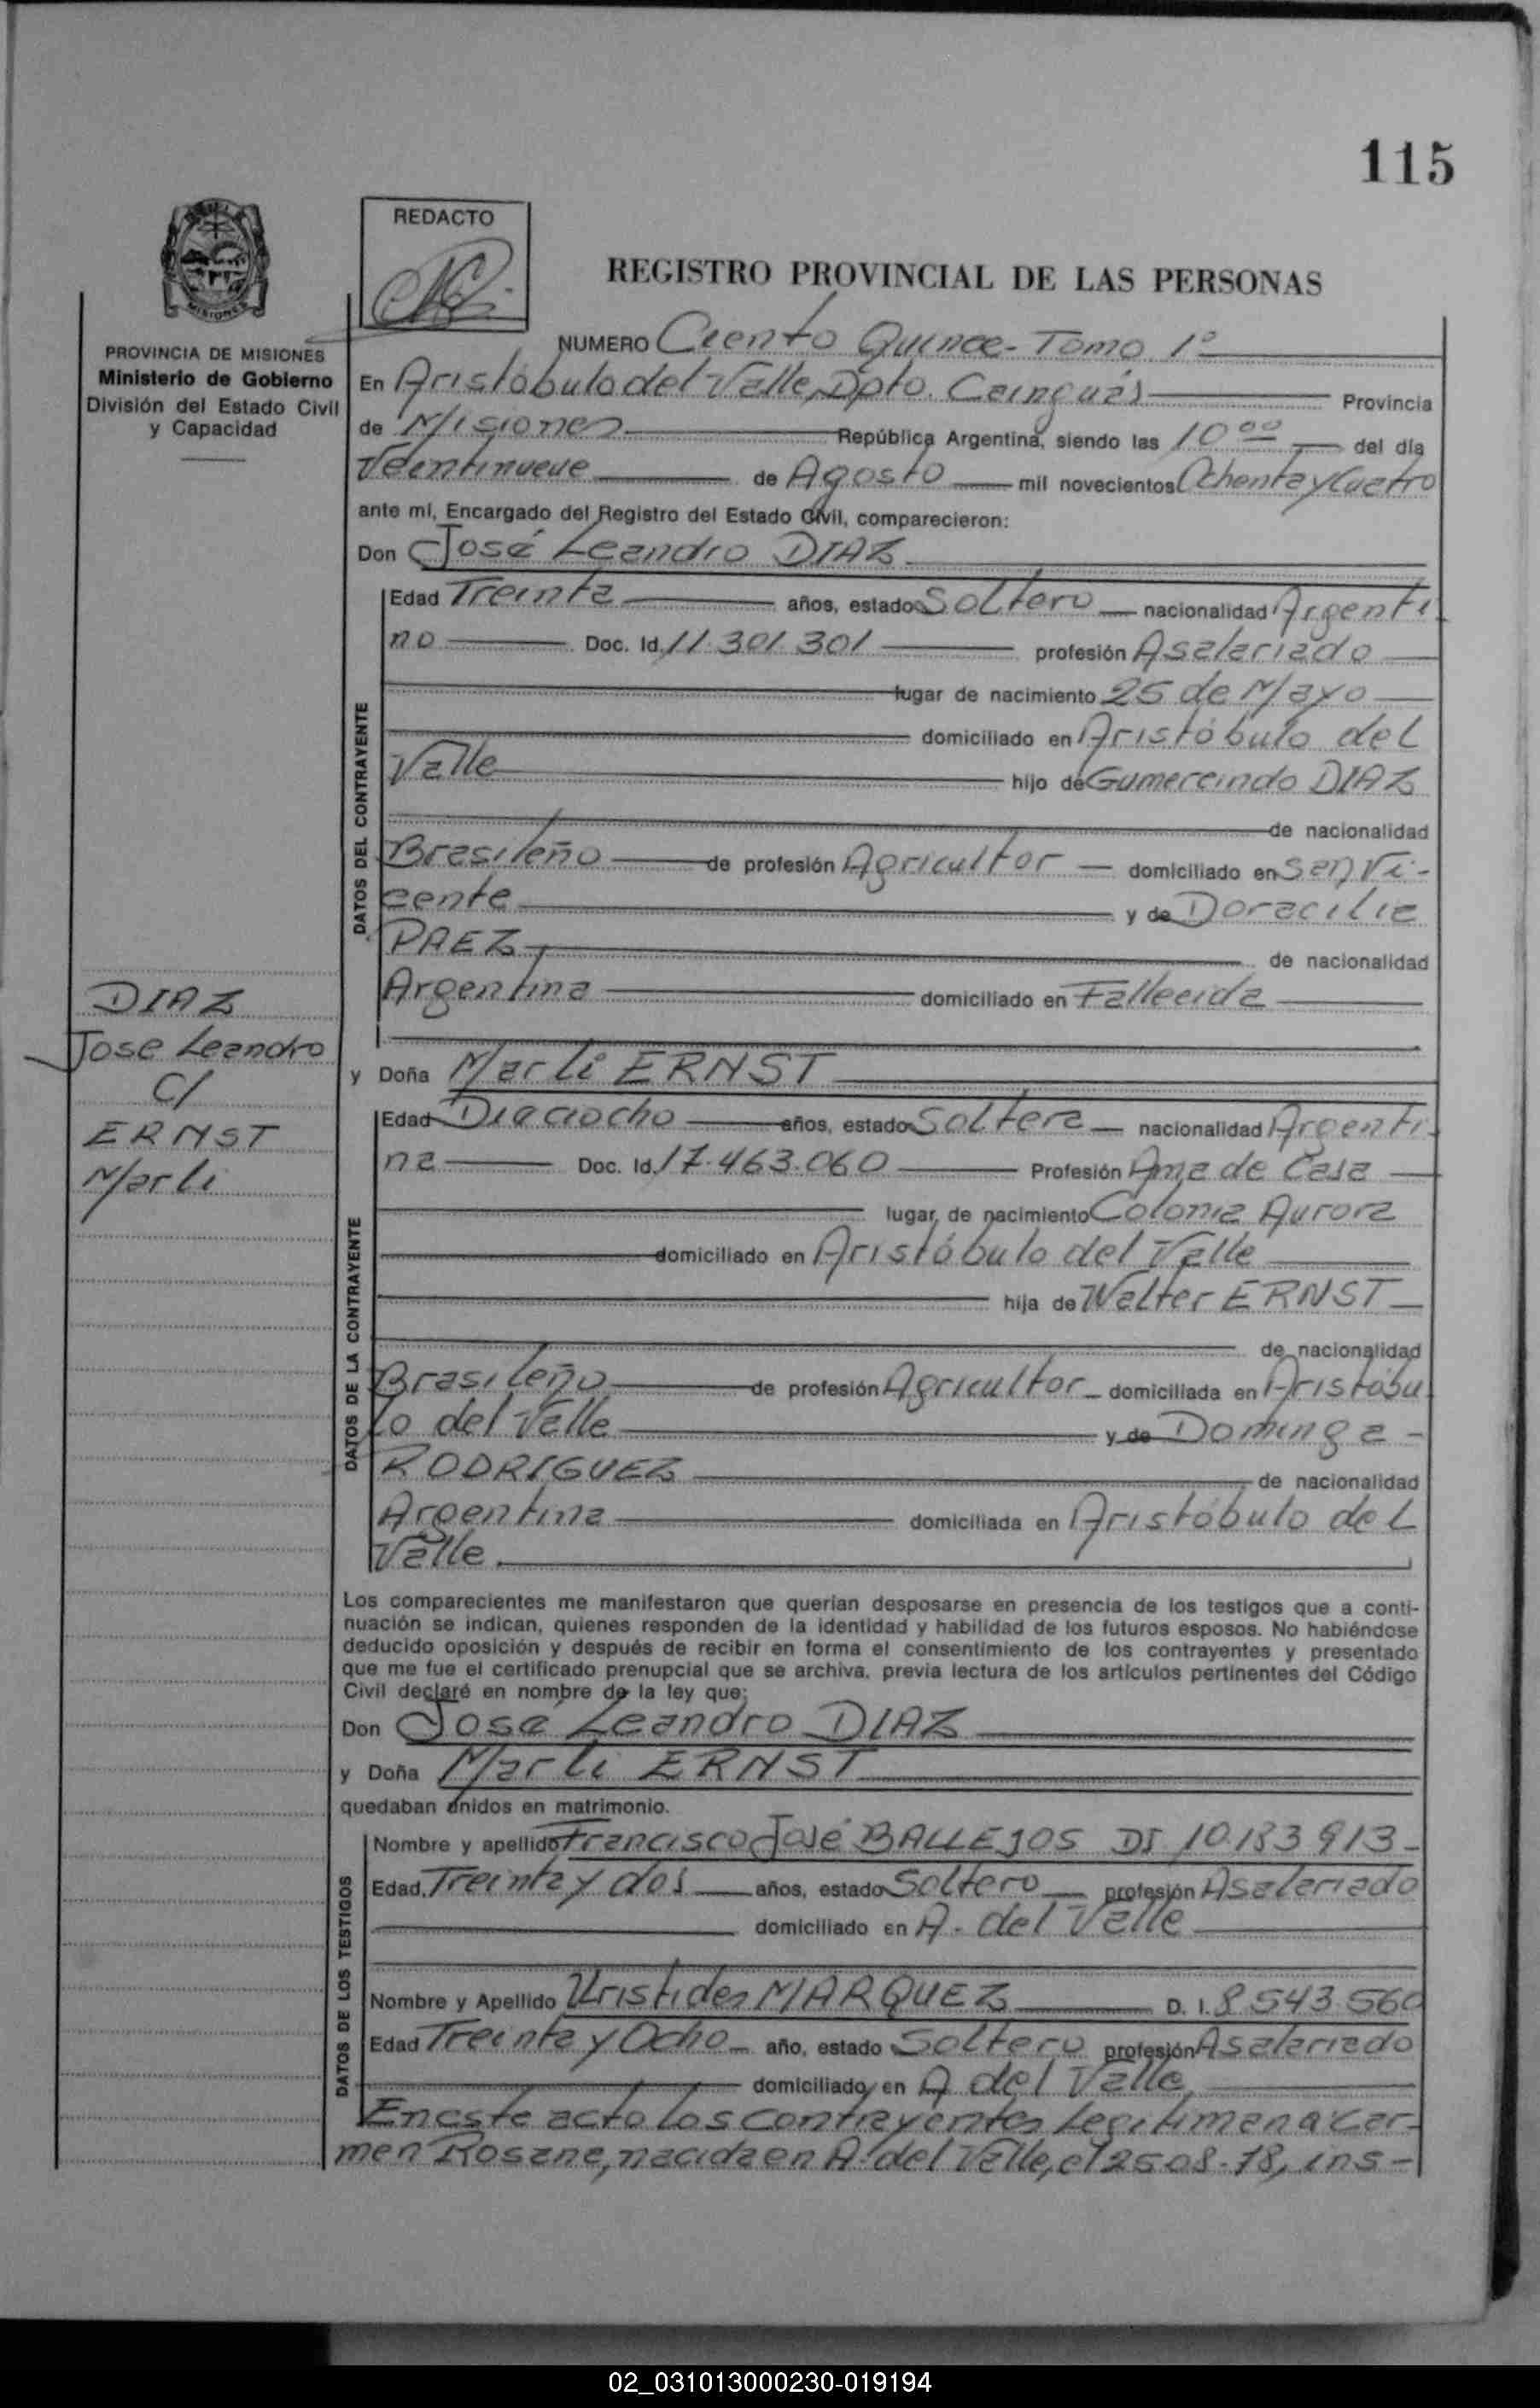 115
REDACTO
REGISTRO PROVINCIAL DE LAS PERSONAS
MISIONES
PROVINCIA DE MISIONES
Ministerio de Gobierno
División del Estado Civil
y Capacidad
NUMERO Ciento Quince - Tomo 1º
En Aristóbulo del Valle, Dpto. Cainguás Provincia
de Misiones República Argentina, siendo las 10 00 del día
Veintinueve de Agosto mil novecientos Ochenta y Cuatro
ante mí, Encargado del Registro del Estado Civil, comparecieron:
Don José Leandro DIAZ
DATOS DEL CONTRAYENTE
Edad Treinta años, estado Soltero nacionalidad Argenti
no Doc. Id. 11.301.301 profesión Asalariado
lugar de nacimiento 25 de Mayo
domiciliado en Aristóbulo del
Valle hijo de Gumercindo DIAZ
de nacionalidad
Brasileño de profesión Agricultor domiciliado en San Vi-
cente y de Doracilia
PAEZ de nacionalidad
Argentina domiciliado en Fallecida
DIAZ
Jose Leandro
C/
ERNST
Marli
y Doña Marli ERNST
DATOS DE LA CONTRAYENTE
Edad Dieciocho años, estado Soltera nacionalidad Argenti-
na Doc. Id. 17.463.060 Profesión Ama de Casa
lugar de nacimiento Colonia Aurora
domiciliado en Aristóbulo del Valle
hija de Walter ERNST
de nacionalidad
Brasileño de profesión Agricultor domiciliada en Aristóbu
lo del Valle y de Dominga -
RODRIGUEZ de nacionalidad
Argentina domiciliada en Aristóbulo del
Valle
Los comparecientes me manifestaron que querían desposarse en presencia de los testigos que a conti-
nuación se indican, quienes responden de la identidad y habilidad de los futuros esposos. No habiéndose
deducido oposición y después de recibir en forma el consentimiento de los contrayentes y presentado
que me fue el certificado prenupcial que se archiva, previa lectura de los artículos pertinentes del Código
Civil declaré en nombre de la ley que:
Don José Leandro DIAZ
y Doña Marli ERNST
quedaban unidos en matrimonio.
DATOS DE LOS TESTIGOS
Nombre y apellido Francisco José BALLEJOS DI 10.183.913-
Edad Treinta y dos años, estado Soltero profesión Asalariado
domiciliado en A. del Valle
Nombre y Apellido Uristides MARQUEZ D. I. 8.543.560
Edad Treinta y Ocho año, estado Soltero profesión Asalariado
domiciliado en A del Valle
En este acto los contrayentes legitiman a Car-
men Rosane, nacida en A. del Valle, el 25-08-78, ins-
02_031013000230-019194